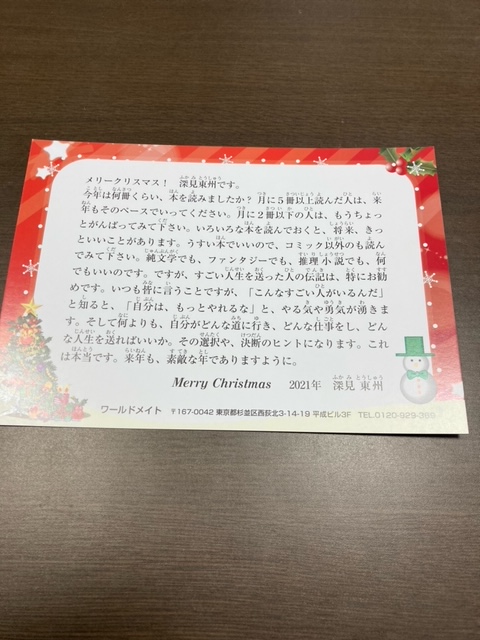 メリークリスマス！　深見東州です。
今年は何冊くらい、本を読みましたか？月に5冊以上読んだ人は、来
年もそのペースでいってください。月に2冊以下の人は、もうちょっ
とがんばってみて下さい。いろいろな本を読んでおくと、将来、きっ
といいことがあります。うすい本でいいので、コミック以外のも読ん
でみて下さい。純文学でも、ファンタジーでも、推理小説でも、何
でもいいのです。ですが、すごい人生を送った人の伝記は、特にお勧
めです。いつも皆に言うことですが、「こんなすごい人がいるんだ」
と知ると、「自分は、もっとやれるな」と、やる気や勇気が湧きま
す。そして何よりも、自分がどんな道に行き、どんな仕事をし、どん
な人生を送ればいいか。その選択や、決断のヒントになります。これ
は本当です。来年も、素敵な年でありますように。
Merry Christmas　2021年　深見 東州
ワールドメイト　〒167-0042 東京都杉並区西荻北3-14-19 平成ビル3F　TEL.0120-929-